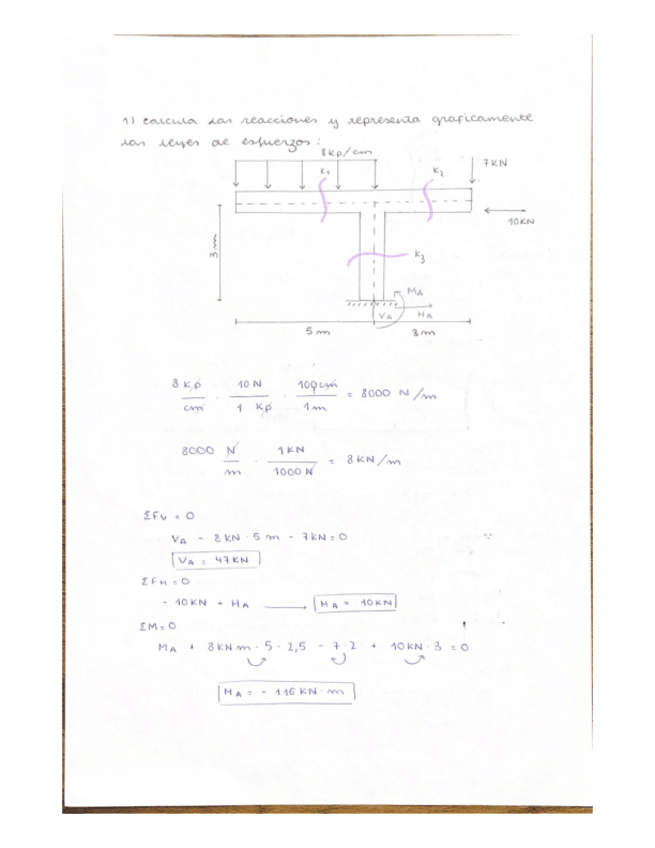 1) calcula las reacciones y representa graficamente
las leyes de esfuerzos:
8Kp/cm
7KN
K1
K2
10KN
3m
K3
MA
VA
HA
5m
3m
8 Kp / cm · 10 N / 1 Kp · 100cm / 1m = 8000 N/m
8000 N / m · 1KN / 1000 N = 8KN/m
ΣFv = 0
VA - 8KN · 5m - 7KN = 0
VA = 47KN
ΣFH = 0
- 10KN + HA → HA = 10KN
ΣM = 0
MA + 8KNm · 5 · 2,5 - 7 · 2 + 10KN · 3 = 0
MA = - 116 KN · m